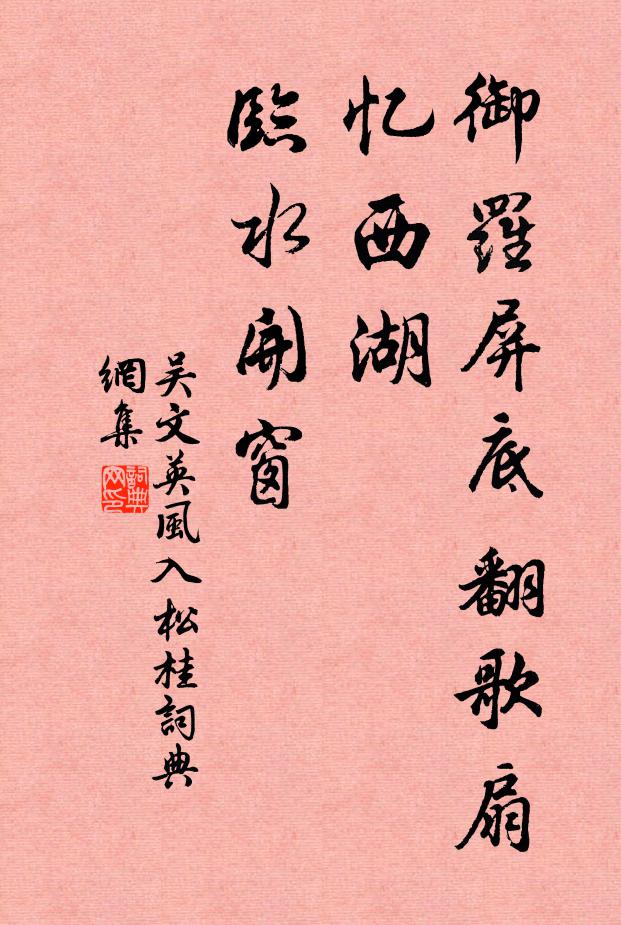 御羅屏底翻歌扇
忆西湖
臨水開窗
吴文英風入松桂詞典
網集
詞典網印